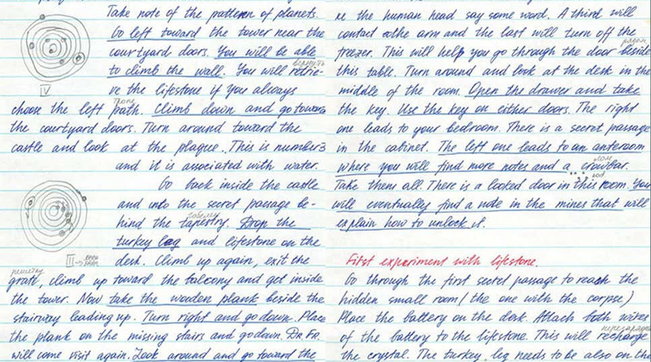 Take note of the pattern of planets.
Go left toward the tower near the
courtyard doors. You will be able
to climb the wall. You will retrie-
вернуть
ve the lifestone if you always
IV
choose the left path. Climb down and go toward
the courtyard doors. Turn around toward the
castle and look at the plaque. This is number 3
and it is associated with water.
Go back inside the castle
and into the secret passage be-
hind the tapestry. Drop the
гобелен
turkey leg and lifestone on the
III
desk. Climb up again, exit the
grate, climb up toward the balcony and get inside
the tower. Now take the wooden plank beside the
stairway leading up. Turn right and go down. Place
the plank on the missing stairs and go down. Dr. Fr.
will come visit again. Look around and go toward the
re the human head say some word. A third will
contact the arm and the last will turn off the
freezer. This will help you go through the door beside
this table. Turn around and look at the desk in the
middle of the room. Open the drawer and take
the key. Use the key on either doors. The right
one leads to your bedroom. There is a secret passage
in the cabinet. The left one leads to an anteroom
where you will find more notes and a crowbar.
лом
Take them all. There is a locked door in this room. You
will eventually find a note in the mines that will
explain how to unlock it.
First experiment with lifestone.
Go through the first secret passage to reach the
hidden small room (the one with the corpse)
Place the battery on the desk. Attach both wires
of the battery to the lifestone. This will recharge
the crystal. The turkey leg needs to be also on the